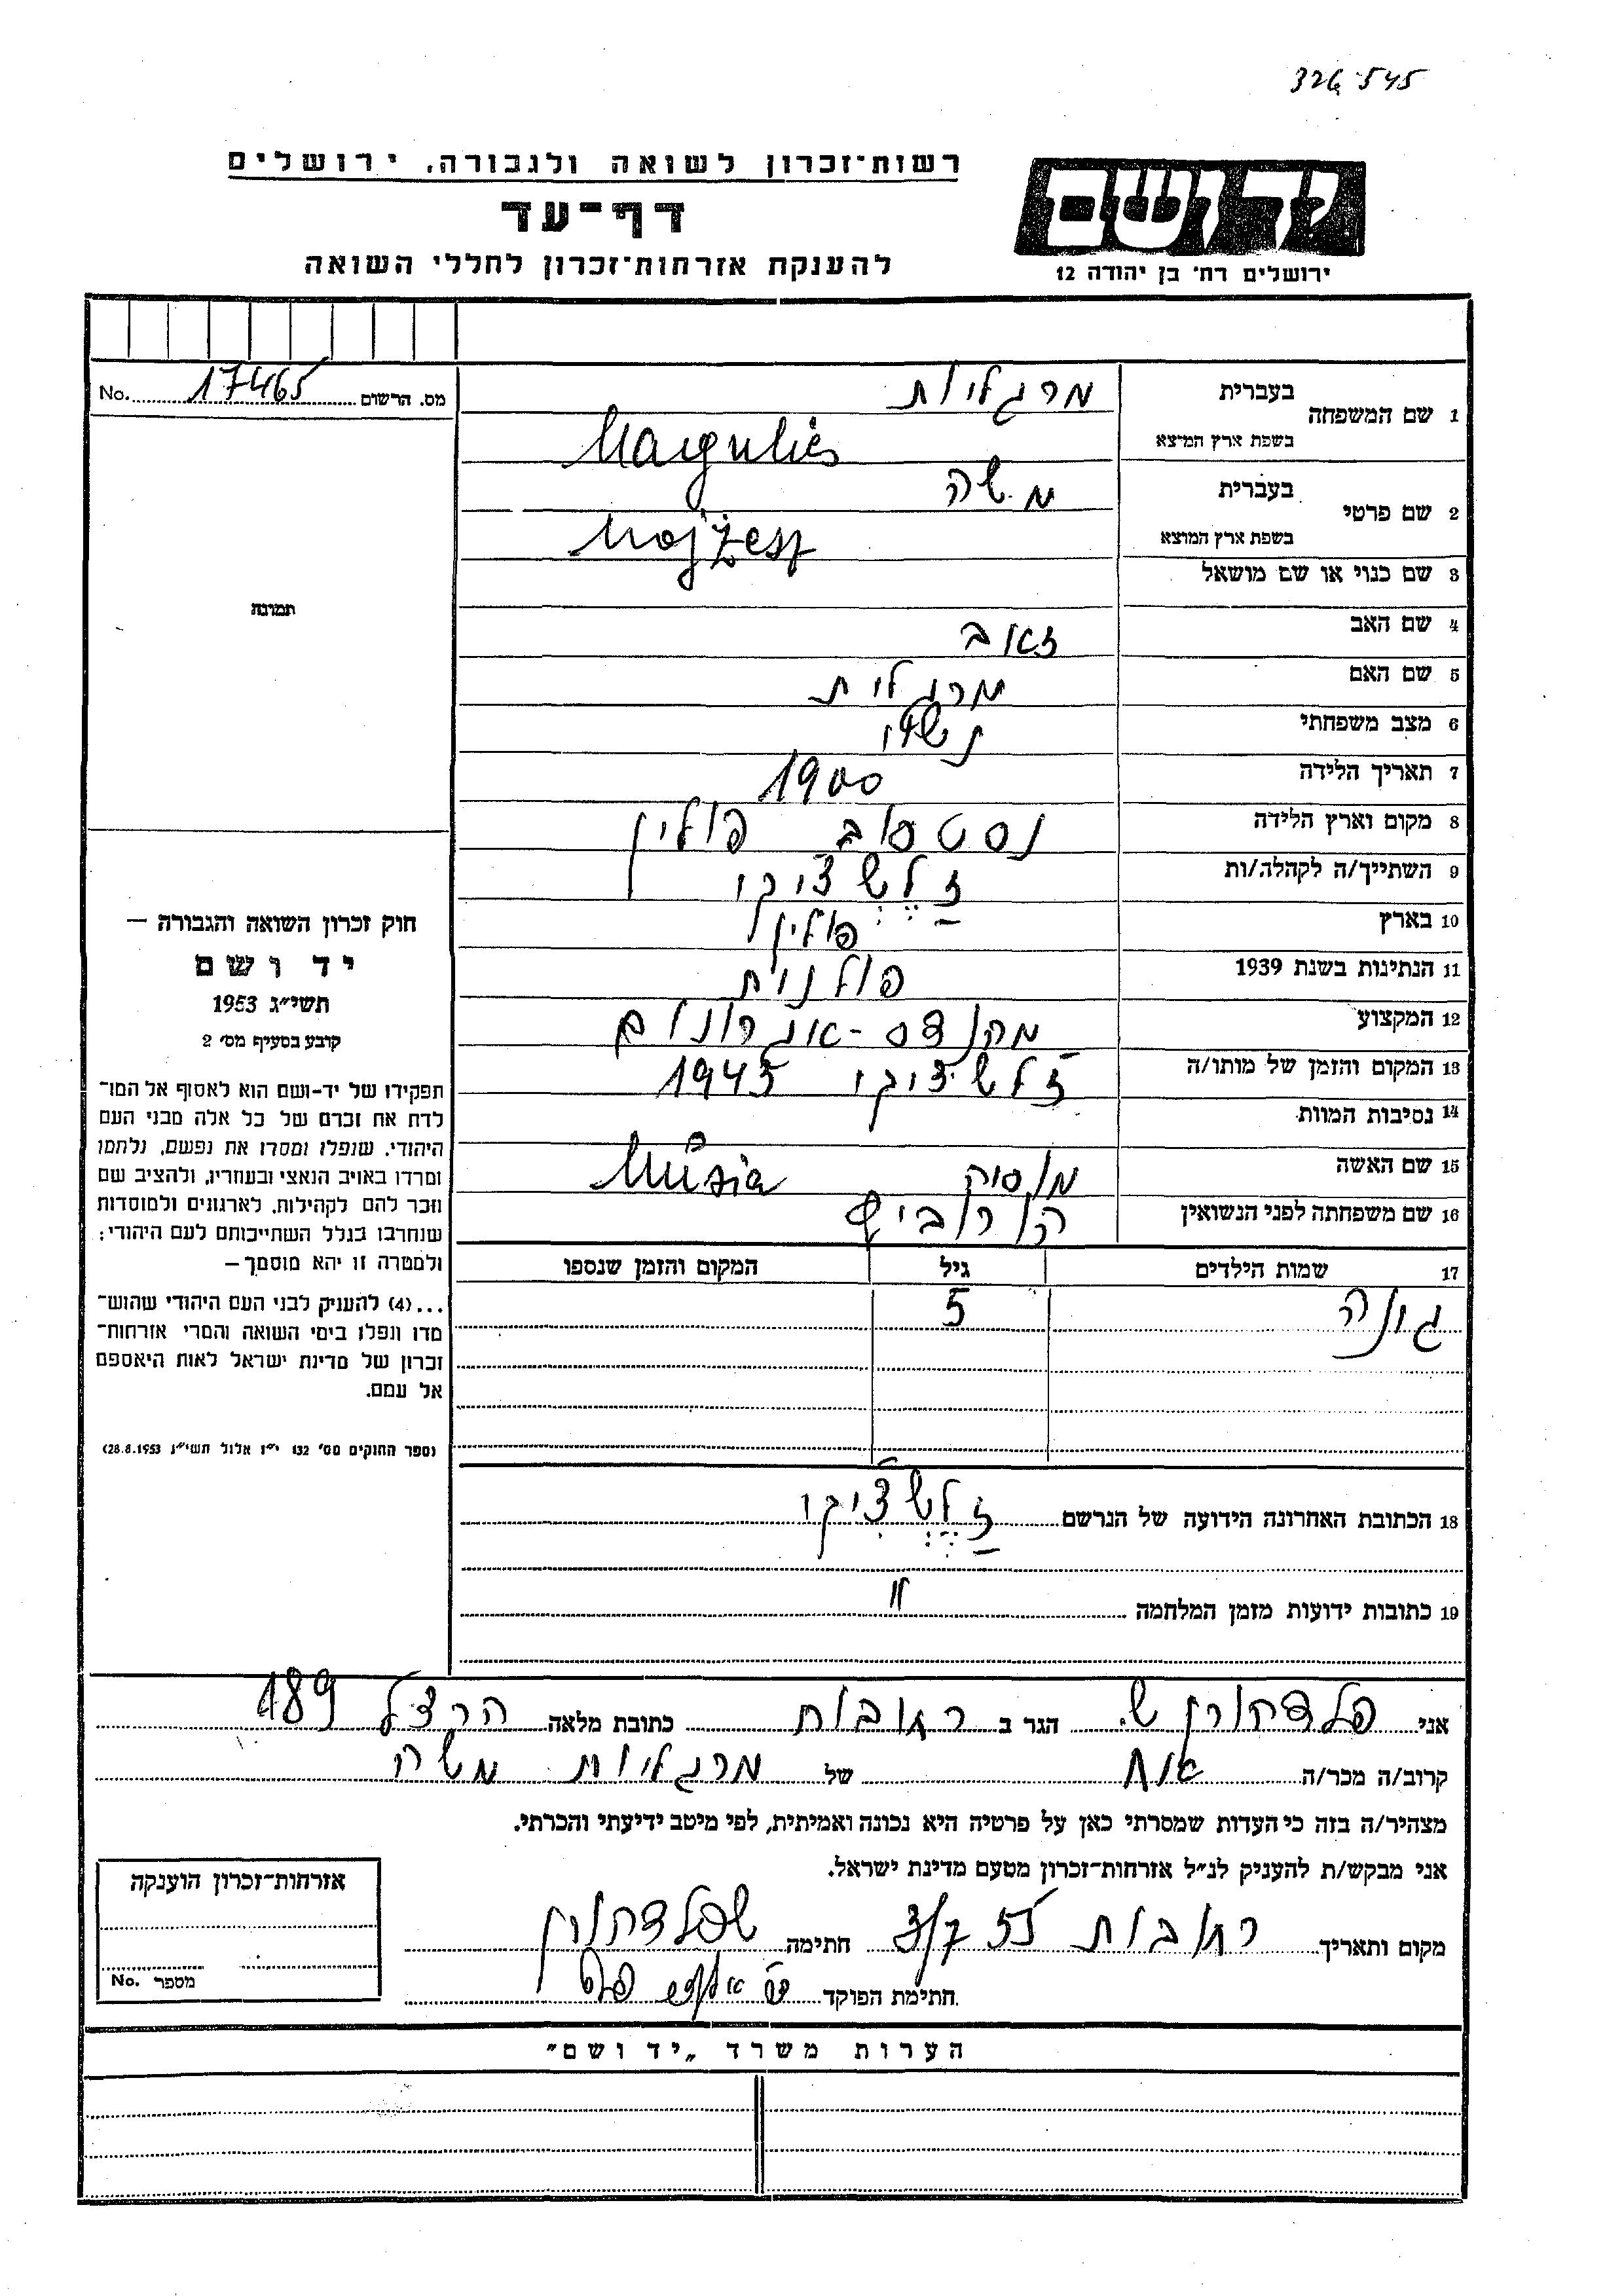 326545
רשות־זכרון לשואה ולגבורה, ירושלים
דף־עד
להענקת אזרחות־זכרון לחללי השואה
יד ושם
ירושלים רח׳ בן יהודה 12
מס. הרשום 17465 No.
1 שם המשפחה בעברית מרגליות
בשפת ארץ המוצא Margulies
2 שם פרטי בעברית משה
בשפת ארץ המוצא Mojżesz
3 שם כנוי או שם מושאל
4 שם האב זאב
5 שם האם מרגלית
6 מצב משפחתי נשוי
7 תאריך הלידה 1900
8 מקום וארץ הלידה פולין
9 השתייך/ה לקהלה/ות זַלֶשְצִיקי
10 בארץ פולין
11 הנתינות בשנת 1939 פולנית
12 המקצוע מהנדס-אגרונום
13 המקום והזמן של מותו/ה זלשציקי 1945
14 נסיבות המוות
15 שם האשה Musia
16 שם משפחתה לפני הנשואין הורוביץ
17 שמות הילדים גיל המקום והזמן שנספו
5
18 הכתובת האחרונה הידועה של הנרשם זַלֶשְצִיקי
19 כתובות ידועות מזמן המלחמה "
תמונה
חוק זכרון השואה והגבורה —
יד ושם
תשי״ג 1953
קובע בסעיף מס׳ 2
תפקידו של יד-ושם הוא לאסוף אל המו־
לדת את זכרם של כל אלה מבני העם
היהודי, שנפלו ומסרו את נפשם, נלחמו
ומרדו באויב הנאצי ובעוזריו, ולהציב שם
וזכר להם לקהילות, לארגונים ולמוסדות
שנחרבו בגלל השתייכותם לעם היהודי;
ולמטרה זו יהא מוסמך —
...(4) להעניק לבני העם היהודי שהוש־
מדו ונפלו בימי השואה והמרי אזרחות־
זכרון של מדינת ישראל לאות היאספם
אל עמם.
(ספר החוקים מס׳ 132 י״ז אלול תשי״ג 28.8.1953)
אני פלדהורן ש. הגר ב רחובות כתובת מלאה הרצל 189
קרוב/ה מכר/ה של מרגליות משה
מצהיר/ה בזה כי העדות שמסרתי כאן על פרטיה היא נכונה ואמיתית, לפי מיטב ידיעתי והכרתי.
אני מבקש/ת להעניק לנ״ל אזרחות-זכרון מטעם מדינת ישראל.
מקום ותאריך רחובות 3/7 55 חתימה ש פלדהורן
חתימת הפוקד
אזרחות-זכרון הוענקה
מספר No.
הערות משרד „יד ושם״